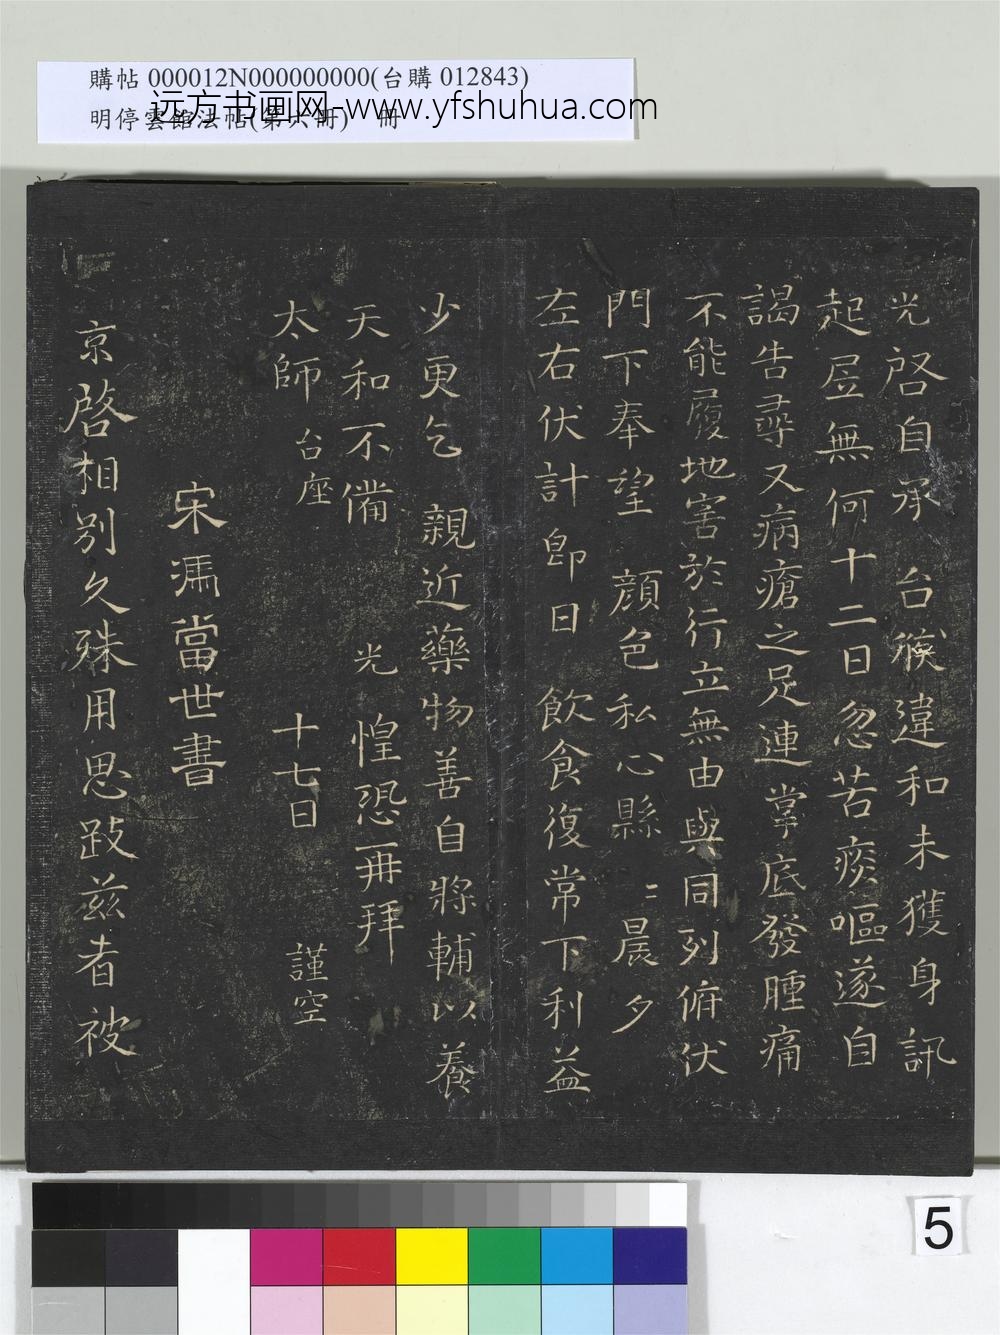 購帖 000012N000000000(台購 012843)
明停雲館法帖(第六冊) 冊
远方书画网-www.yfshuhua.com
光啓自承 台候違和未獲身訊
起居無何十二日忽苦痰嘔遂自
謁告尋又病瘡之足連掌底發腫痛
不能履地害於行立無由與同列俯伏
門下奉望 顏色私心縣〻晨夕
左右伏計即日 飲食復常下利益
少更乞 親近藥物善自將輔以養
天和不備 光 惶恐再拜
太師 台座 十七日 謹空
宋馮當世書
京啓相別久殊用思跂兹者被
5